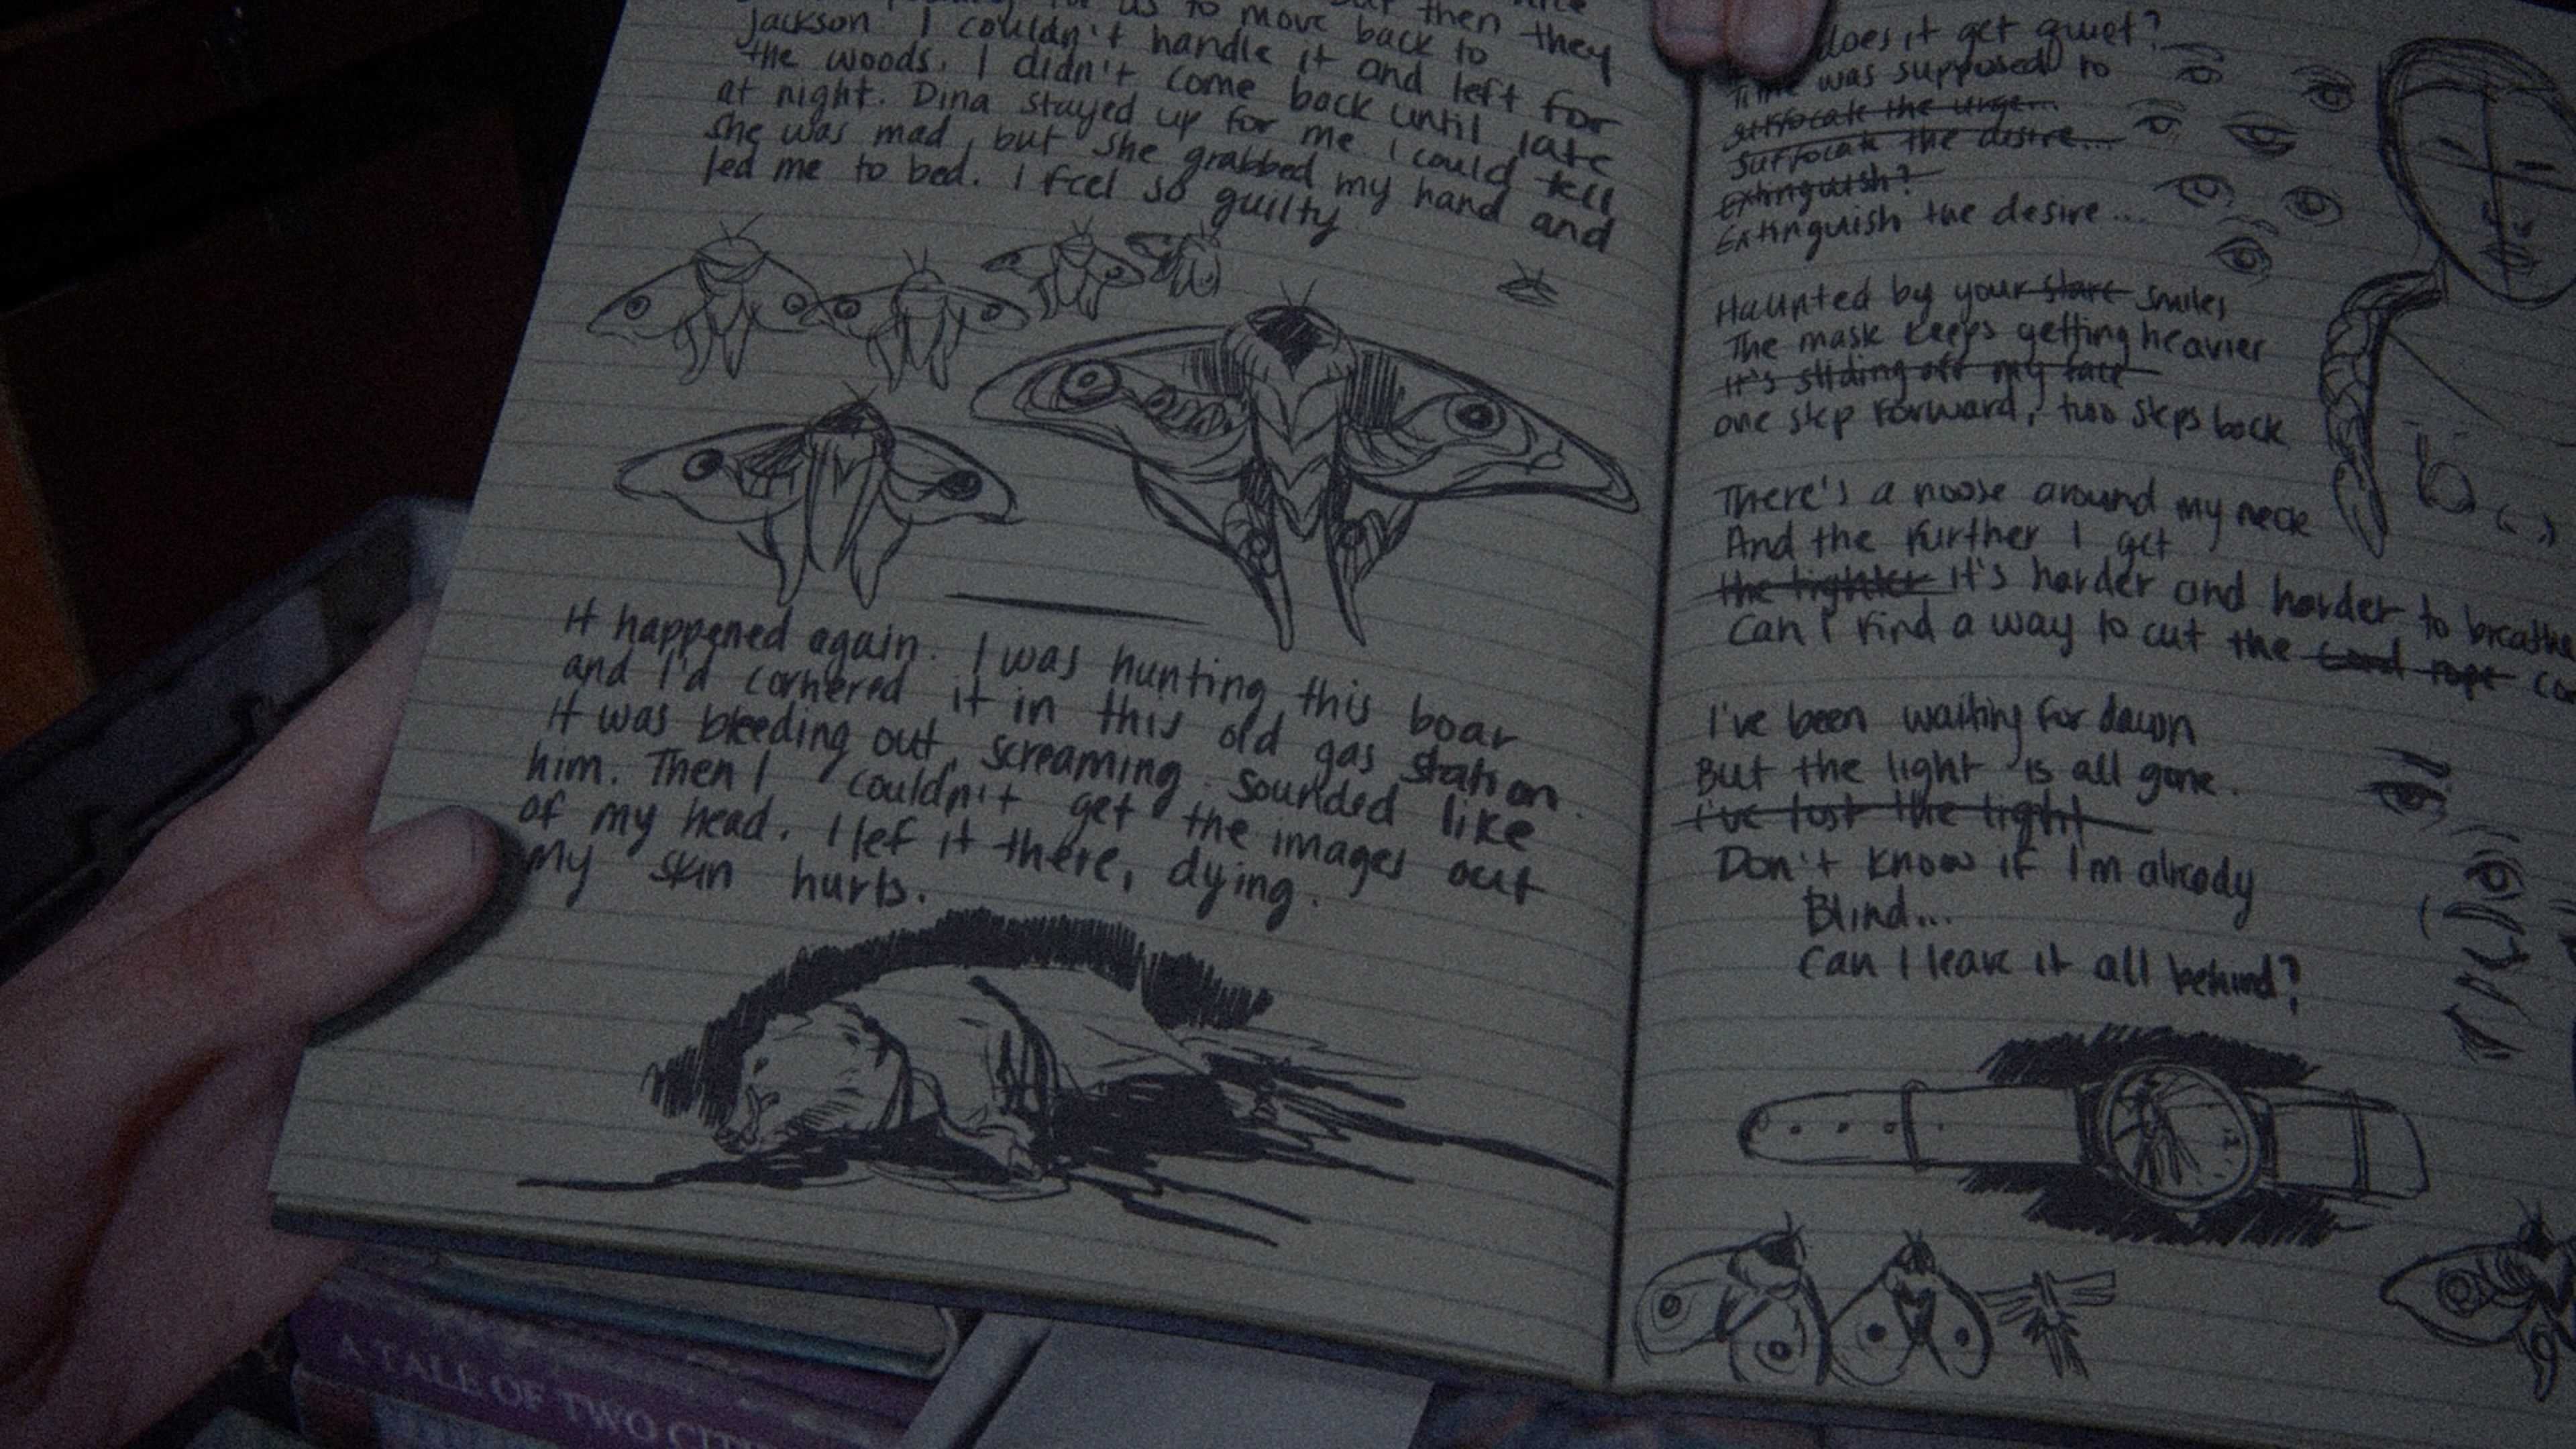 for us to move back to
Jackson. I couldn't handle it and left for
the woods. I didn't come back until late
at night. Dina stayed up for me I could tell
she was mad, but she grabbed my hand and
led me to bed. I feel so guilty
It happened again. I was hunting this boar
and I'd cornered it in this old gas station.
It was bleeding out, screaming. Sounded like
him. Then I couldn't get the images out
of my head. I lef it there, dying.
My skin hurts.
does it get quiet?
Time was supposed to
suffocate the urge...
Suffocate the desire...
Extinguish?
Extinguish the desire...
Haunted by your stare smiles
The mask keeps getting heavier
It's sliding off my face
one step forward, two steps back
There's a noose around my neck
And the further I get
the tighter it's harder and harder to breathe
Can I find a way to cut the cord rope
I've been waiting for dawn
But the light is all gone.
I've lost the light
Don't know if I'm already
Blind...
Can I leave it all behind?
A TALE OF TWO CITI